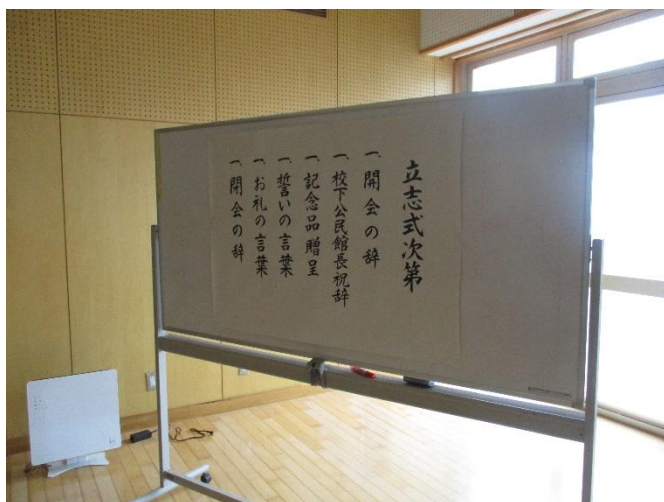 立志式次第
一、開会の辞
一、校下公民館長祝辞
一、記念品贈呈
一、誓いの言葉
一、お礼の言葉
一、閉会の辞